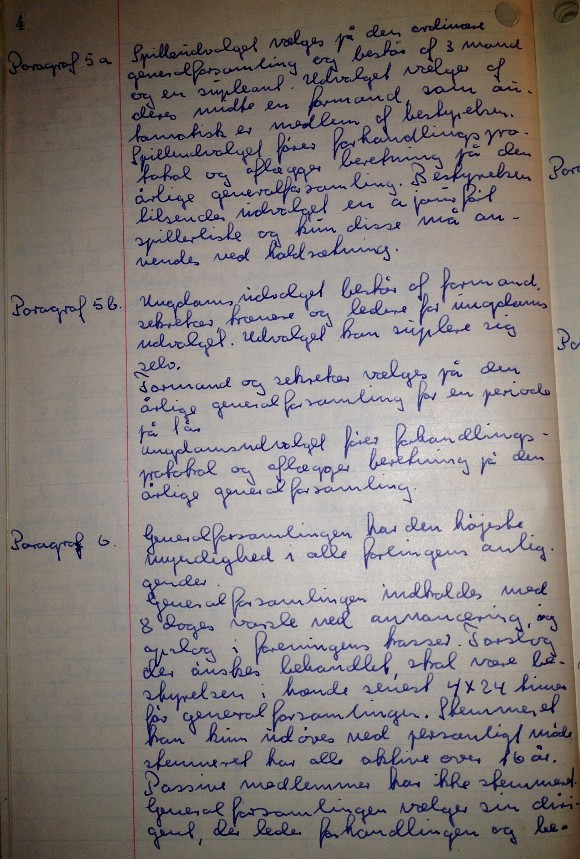 4
Paragraf 5a Spilleudvalget vælges på den ordinære
generalforsamling og består af 3 mand
og en supleant. Udvalget vælger af
deres midte en formand som au-
tomatisk er medlem af bestyrelsen.
Spilleudvalget fører forhandlingspro-
tokol og aflægger beretning på den
årlige generalforsamling. Bestyrelsen
tilsender udvalget en á jour ført
spillerliste og kun disse må an-
vendes ved holdsætning.
Paragraf 5b. Ungdomsudvalget består af formand,
sekretær, trænere og ledere for ungdoms
udvalget. Udvalget kan suplere sig
selv.
Formand og sekretær vælges på den
årlige generalforsamling for en periode
på 1 år
Ungdomsudvalget fører forhandlings-
protokol og aflægger beretning på den
årlige generalforsamling.
Paragraf 6. Generalforsamlingen har den højeste
myndighed i alle foreningens anlig-
gender.
Generalforsamlingen indkaldes med
8 dages varsle ved annoncering, og
opslag i foreningens kasser. Forslag
der ønskes behandlet, skal være be-
styrelsen i hænde senest 4x24 timer
før generalforsamlingen. Stemmeret
kan kun udøves ved personligt møde
stemmeret har alle aktive over 16 år.
Passive medlemmer har ikke stemmeret.
Generalforsamlingen vælger sin diri-
gent, der leder forhandlingen og be-